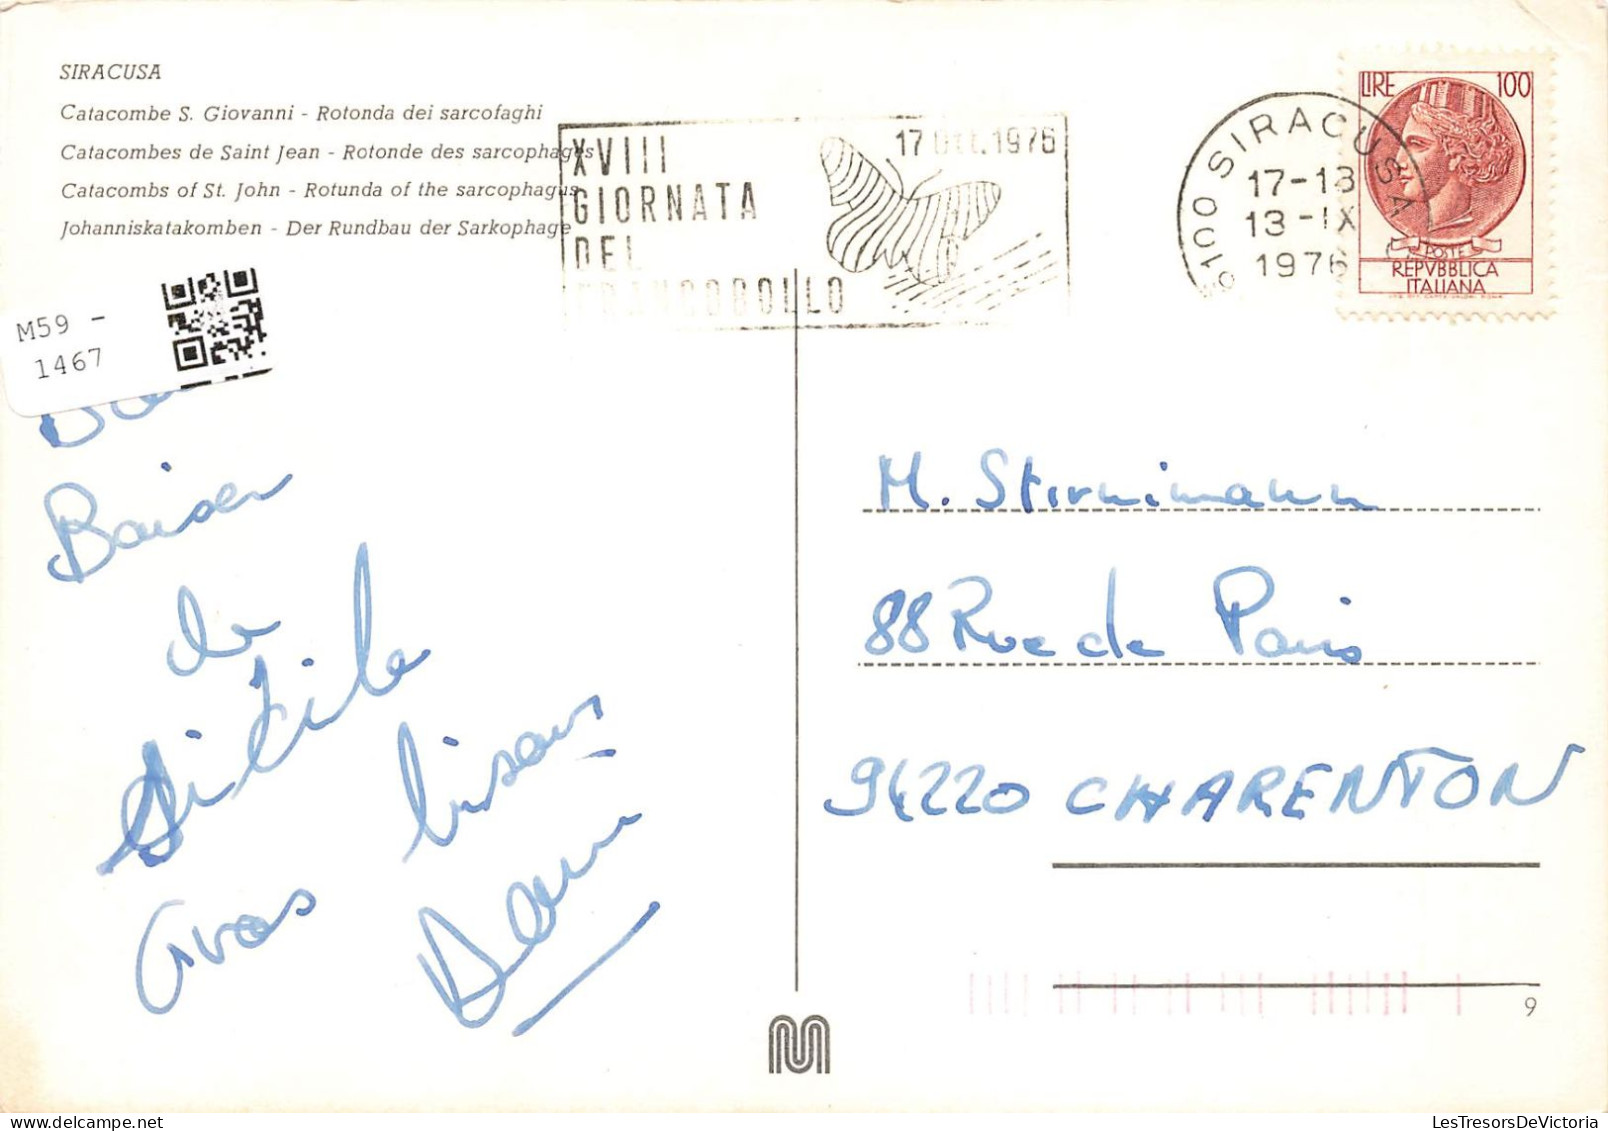 SIRACUSA
Catacombe S. Giovanni - Rotonda dei sarcofaghi
Catacombes de Saint Jean - Rotonde des sarcophages
Catacombs of St. John - Rotunda of the sarcophagus
Johanniskatakomben - Der Rundbau der Sarkophage
XVIII
GIORNATA
DEL
FRANCOBOLLO
17 DIC. 1976
SIRACUSA
17-18
13-IX
1976
LIRE 100
POSTE
REPVBBLICA
ITALIANA
M59 -
1467
Baiser
de
Sicile
Gros bisous
M. Stirnimann
88 Rue de Paris
94220 CHARENTON
9
LesTresorsDeVictoria